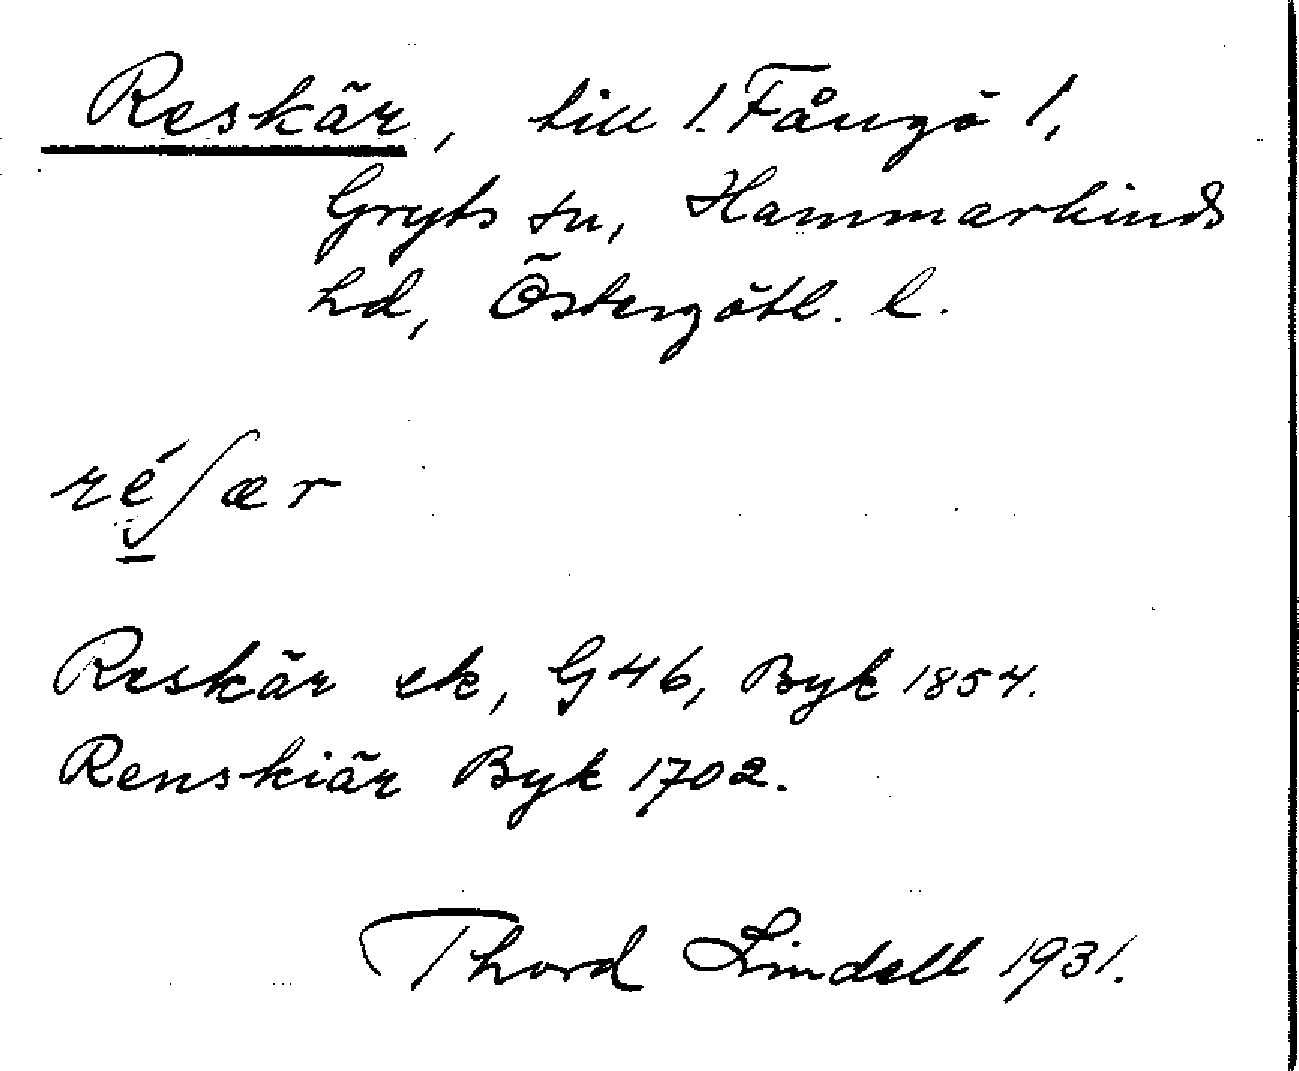 Reskär, till 1. Fångö 1,
Gryts sn, Hammarkinds
hd, Östergötl. l.
réʃær
Reskär ek, G46, Byk 1854.
Renskiär Byk 1702.
Thord Lindell 1931.